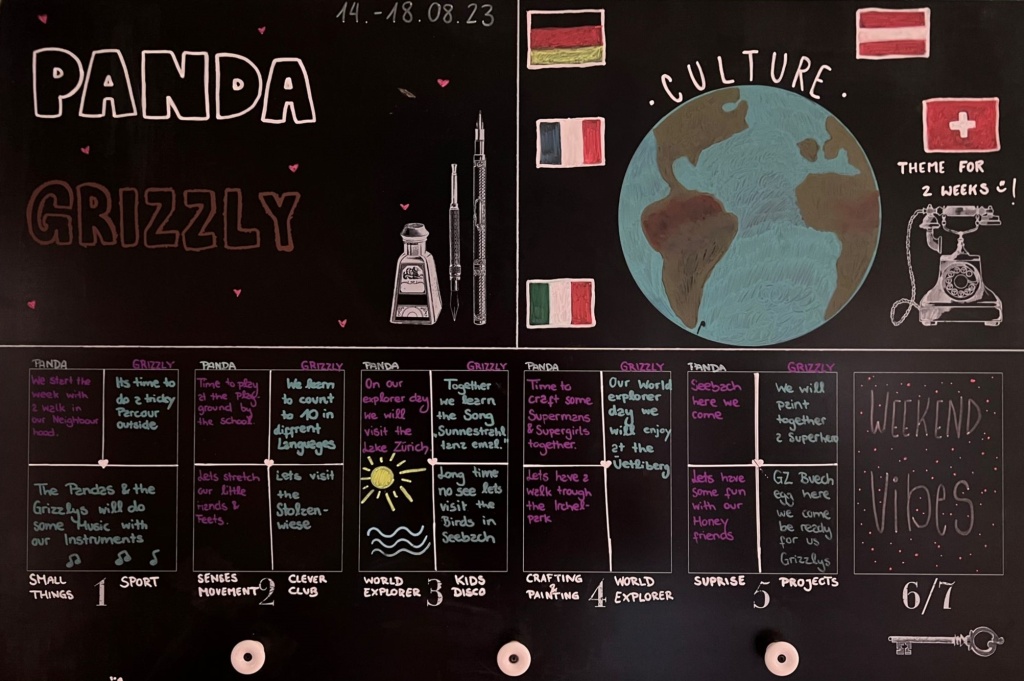 14.-18.08.23
PANDA
GRIZZLY
·CULTURE·
THEME FOR
2 WEEKS !
PANDA GRIZZLY
We start the
week with
a walk in
our Neighbour
hood.
Its time to
do a tricky
Parcour
outside
The Pandas & the
Grizzlys will do
some Music with
our Instruments
SMALL
THINGS
1
SPORT
PANDA GRIZZLY
Time to play
at the play
ground by
the school.
We learn
to count
to 10 in
diffrent
Languages
Lets stretch
our little
Hands &
Feets.
Lets visit
the
Stolzen-
wiese
SENSES
MOVEMENT
2
CLEVER
CLUB
PANDA GRIZZLY
On our
explorer day
we will
visit the
Lake Zürich
Together
we learn
the Song
"Sunnestrahl
tanz emal."
Long time
no see lets
visit the
Birds in
Seebach
WORLD
EXPLORER
3
KIDS
DISCO
PANDA GRIZZLY
Time to
craft some
Supermans
& Supergirls
together.
Our World
explorer
day we
will enjoy
at the
Üetliberg
Lets have a
walk trough
the Irchel-
park
CRAFTING
&
PAINTING
4
WORLD
EXPLORER
PANDA GRIZZLY
Seebach
here we
come
We will
paint
together
a Superhero
Lets have
some fun
with our
Honey
friends
GZ Buech
egg here
we come
be ready
for us
Grizzlys
SUPRISE
5
PROJECTS
WEEKEND
Vibes
6/7